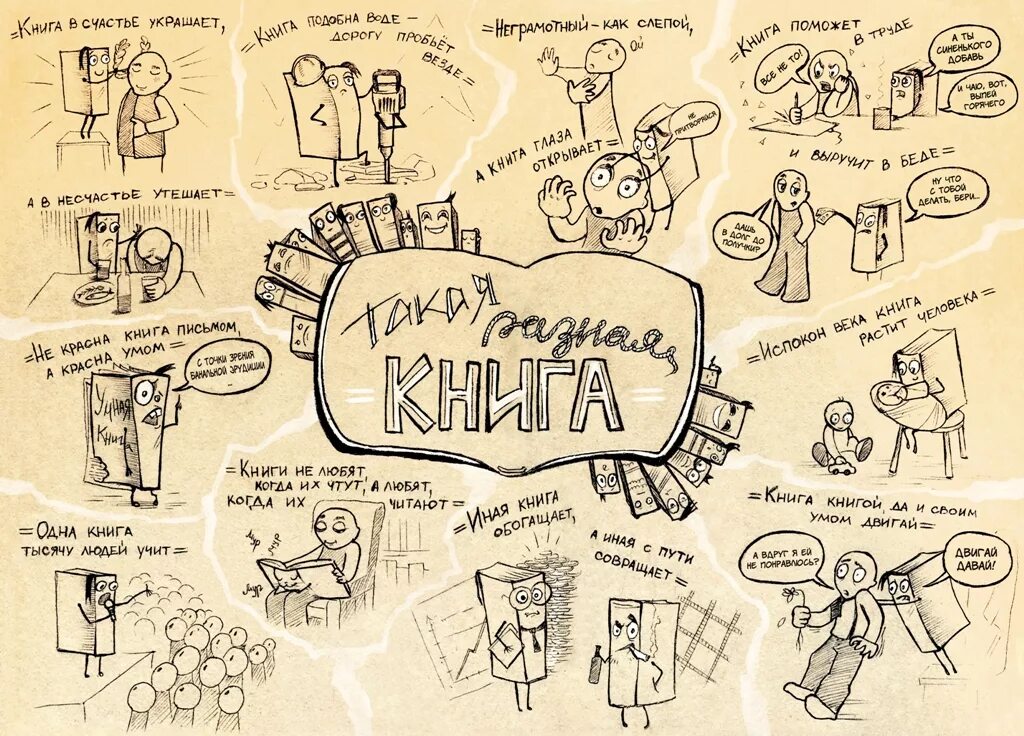 =Книга в счастье украшает,
а в несчастье утешает=
=Книга подобна воде –
дорогу пробьёт
везде=
=Неграмотный – как слепой,
Ой
а книга глаза
открывает=
Не
притворяйся
=Книга поможет
в труде
Все не то!
А ты
синенького
добавь
И чаю, вот,
выпей
горячего
и выручит в беде=
Дашь
в долг до
получки?
Ну что
с тобой
делать, бери...
Такая
разная
=КНИГА=
=Не красна книга письмом,
а красна умом=
С точки зрения
банальной эрудиции
...
Умная
книга
=Испокон века книга
растит человека=
=Одна книга
тысячу людей учит=
=Книги не любят,
когда их чтут, а любят,
когда их читают=
Мур
мур
Мур
=Иная книга
обогащает,
а иная с пути
совращает=
=Книга книгой, да и своим
умом двигай=
А вдруг я ей
не понравлюсь?
Двигай
давай!